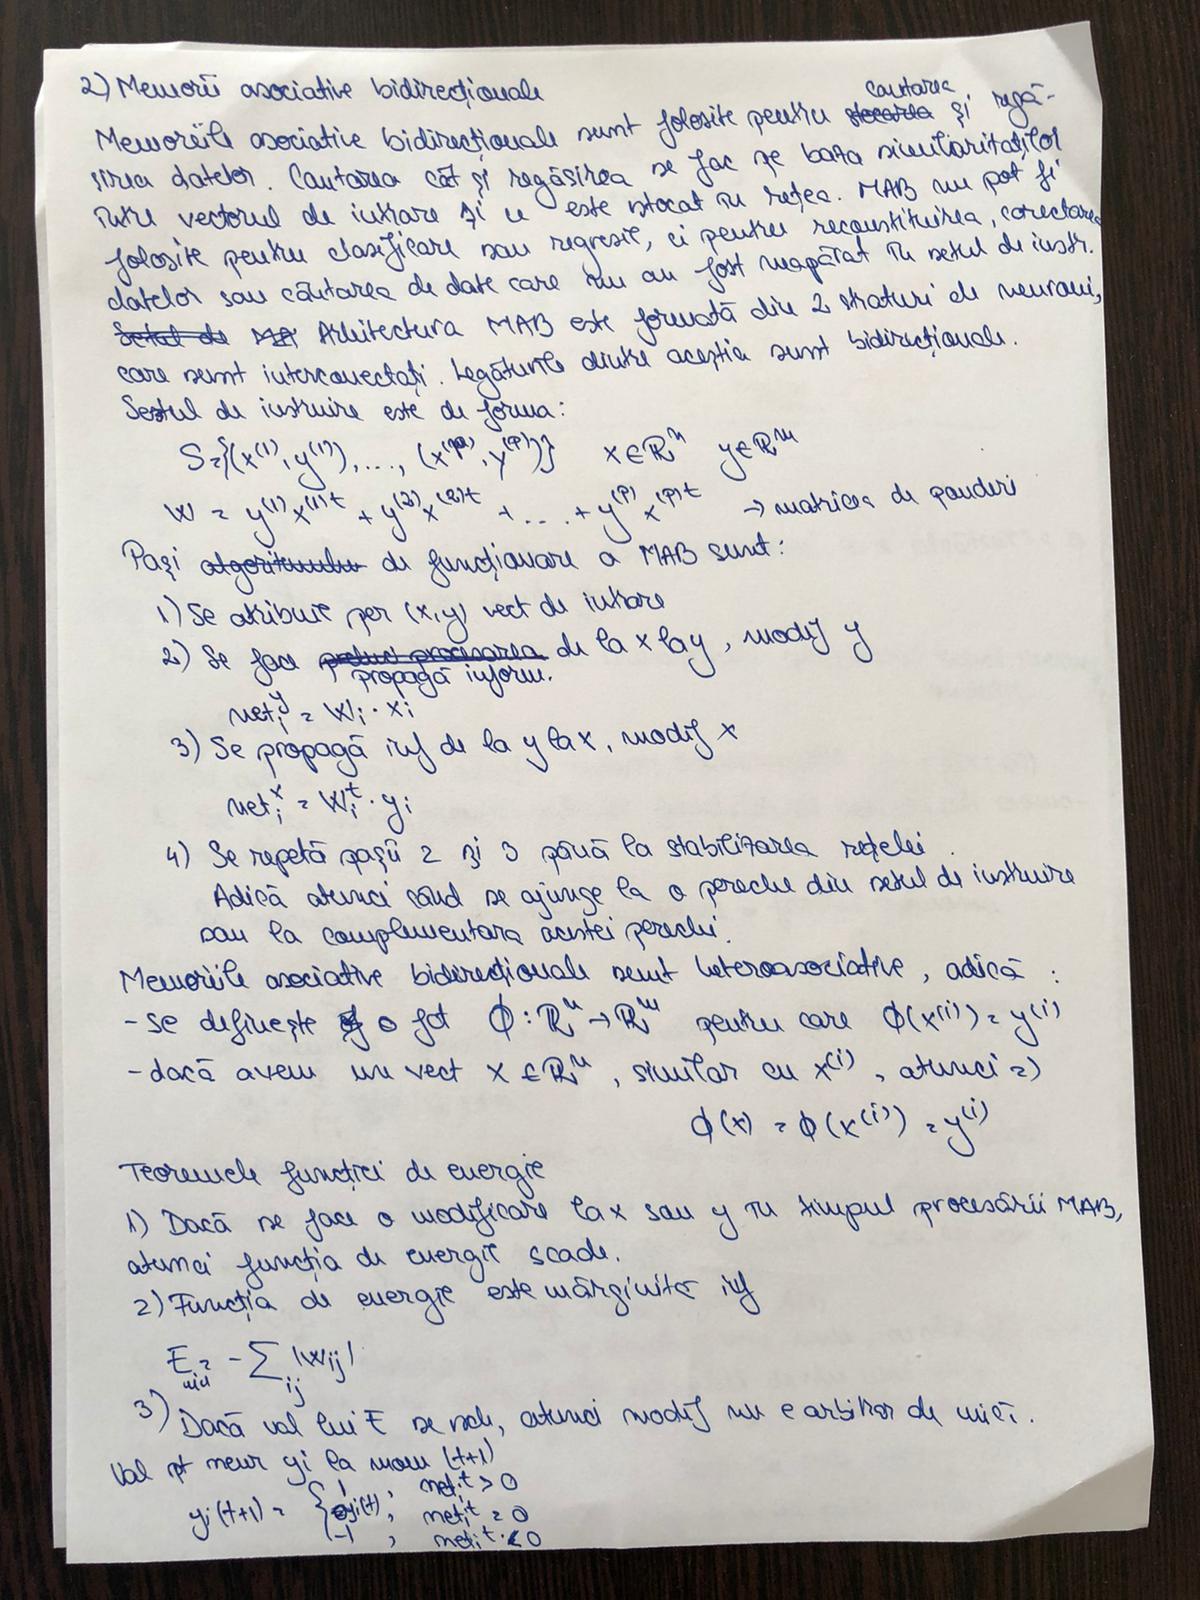 2) Memorii asociative bidirecționale
Memoriile asociative bidirecționale sunt folosite pentru ~~stocarea~~ cautarea și regă-
sirea datelor. Cautarea cât și regăsirea se fac pe baza similarităților
între vectorul de intrare și ce este stocat în rețea. MAB nu pot fi
folosite pentru clasificare sau regresie, ci pentru reconstituirea, corectarea
datelor sau căutarea de date care nu au fost neapărat în setul de instr.
~~Setul de~~ ~~MA~~ Arhitectura MAB este formată din 2 straturi de neuroni,
care sunt interconectați. Legăturile dintre aceștia sunt bidirecționale.
Setul de instruire este de forma:
S={(x^(1), y^(1)), ..., (x^(p), y^(p))} x∈ℝ^n y∈ℝ^m
W = y^(1)x^(1)t + y^(2)x^(2)t + ... + y^(p)x^(p)t → matricea de ponderi
Pași ~~algoritmului~~ de funcționare a MAB sunt:
1) Se atribuie per (x,y) vect de intrare
2) Se face de la x la y, modif y
propagă inform.
net_i^y = W_i · x_i
3) Se propagă inf de la y la x, modif x
net_i^x = W_i^t · y_i
4) Se repetă pașii 2 și 3 până la stabilizarea rețelei.
Adică atunci când se ajunge la o pereche din setul de instruire
sau la complementara acestei perechi.
Memoriile asociative bidirecționale sunt heteroasociative, adică :
- se definește o fct ϕ: ℝ^n → ℝ^m pentru care ϕ(x^(i)) = y^(i)
- dacă avem un vect x ∈ ℝ^n, similar cu x^(i), atunci =)
ϕ(x) = ϕ(x^(i)) = y^(i)
Teoremele funcției de energie
1) Dacă se face o modificare la x sau y în timpul procesării MAB,
atunci funcția de energie scade.
2) Funcția de energie este mărginită inf
E_min = - Σ_ij |W_ij|
3) Dacă val lui E se sch, atunci modif nu e arbitrar de mică.
Val pt neur yi la mom (t+1)
y_i(t+1) = { 1, net_i^t > 0
y_i(t), net_i^t = 0
-1, net_i^t < 0